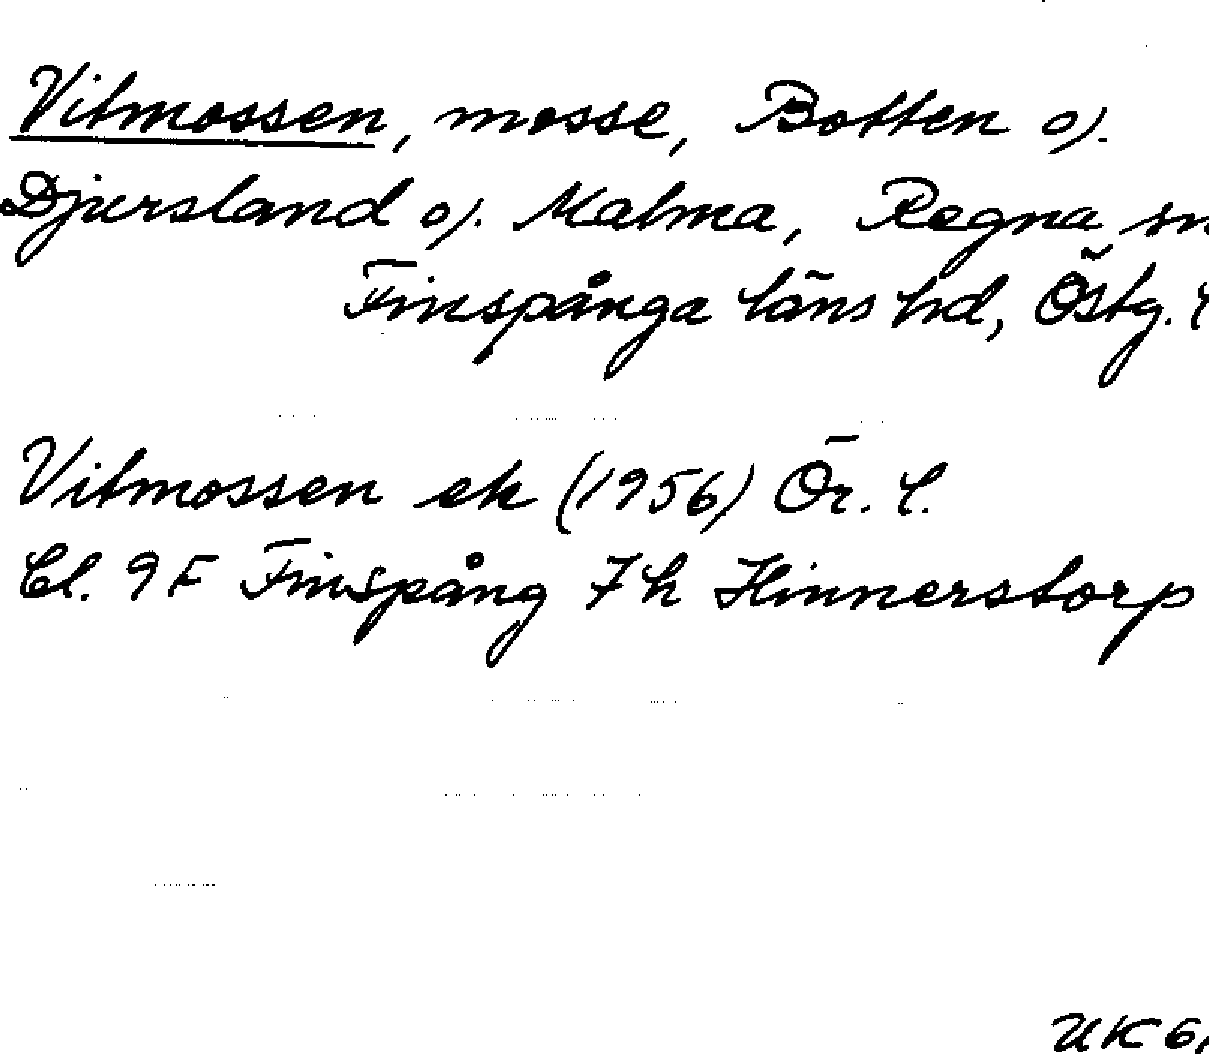 Vitmossen, mosse, Botten o).
Djursland o). Malma, Regna sn
Finspånga läns hd, Östg. l
Vitmossen ek (1956) Ör. l.
Bl. 9F Finspång 7h Hinnerstorp
UK 6,